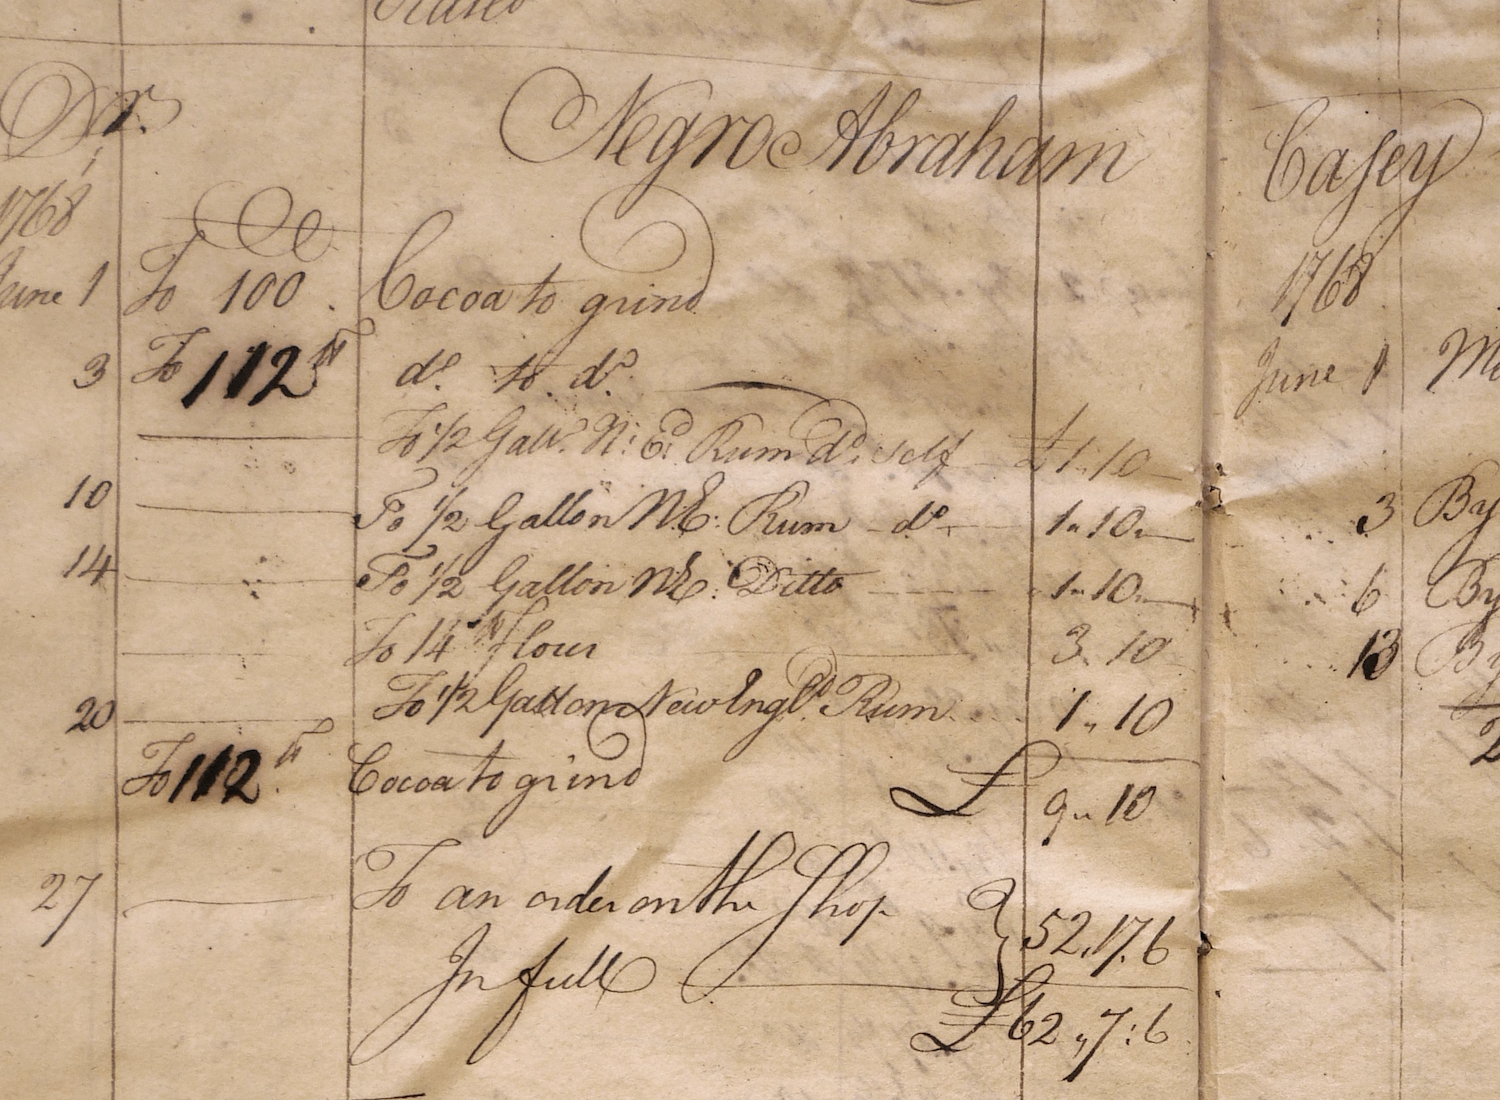 Dr. Negro Abraham Casey
1768
June 1 To 100 . Cocoa to grind
3 To 112 lb do. to do.
To 1/2 Gall. N: Ed: Rum do. self £1.10
10 To 1/2 Gallon NE: Rum do 1.. 10..
14 To 1/2 Gallon NE: Ditto 1.. 10..
To 14 lb flour 3. 10
20 To 1/2 Gallon New Engld. Rum 1.. 10
To 112 lb Cocoa to grind £ 9.. 10
27 To an order on the Shop
In full } 52.17.6
£62..7:6
1768
June 1
3 By
6 By
13 By